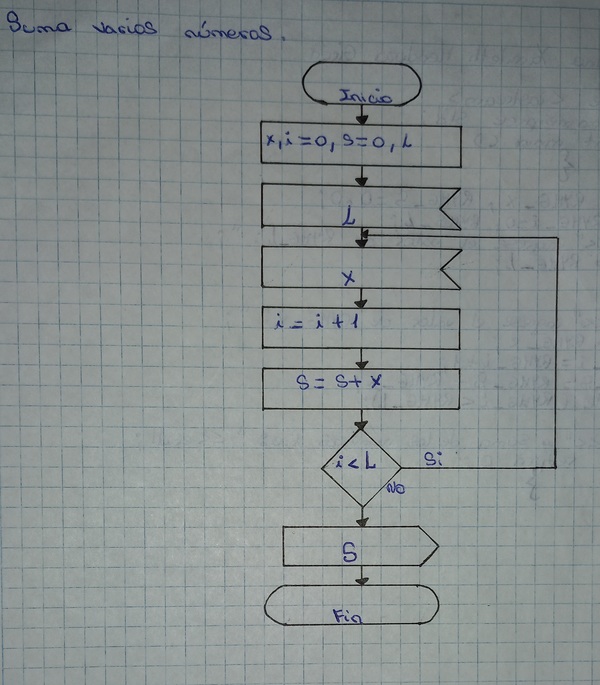 Suma varios números.
Inicio
x, i=0, S=0, L
L
x
i = i + 1
S = S + x
i < L
Si
No
S
Fin